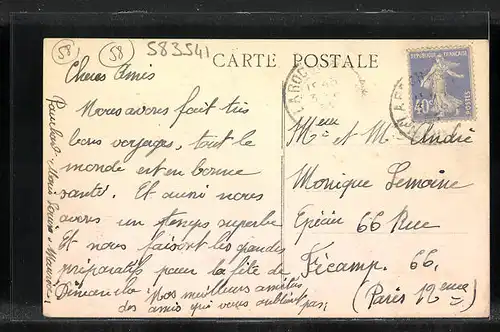 58
58
583541
CARTE POSTALE
RÉPUBLIQUE FRANÇAISE
40c
POSTES
LAROC
Cheres Amis
Nous avons fait très
bons voyages, tout le
monde est en bonne
santé. Et aussi nous
avons un temps superbe
Et nous faisons les grandes
préparatifs pour la fête de
Dimanche. Nos meilleurs amitiés
des amis qui vous oublient pas
Marie Louise
Mme et M André
Monique Lemoine
Epicier 66 Rue
Ficamp. 66.
(Paris 12eme)